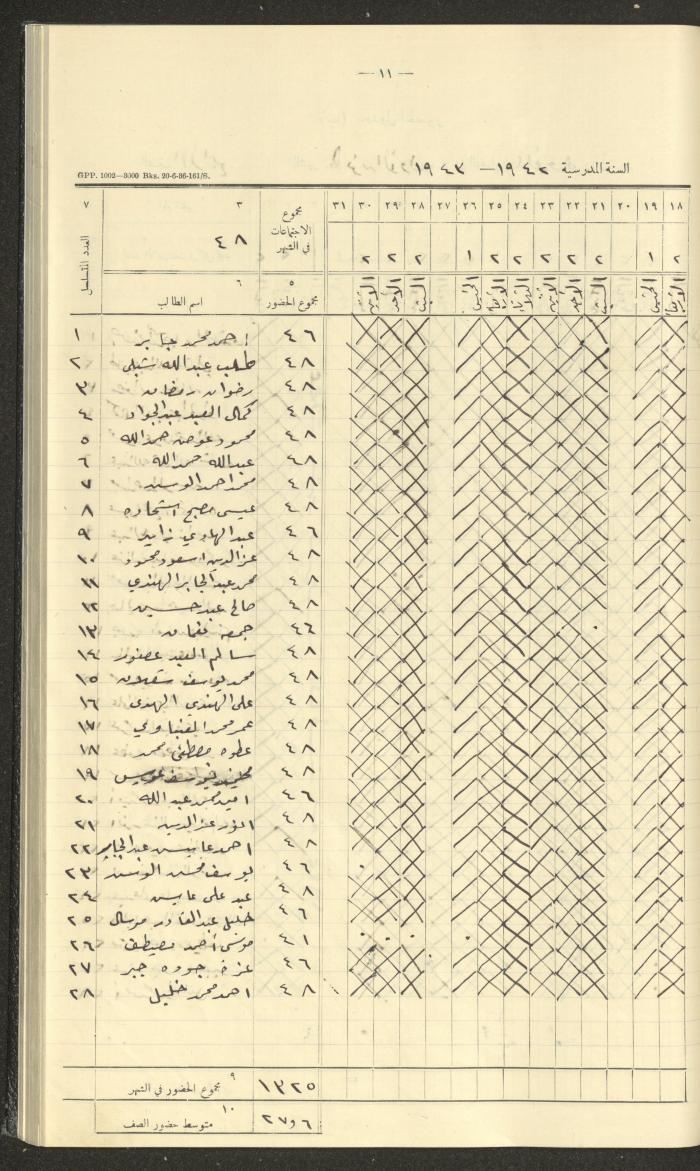 — ١١ —
السنة المدرسية ١٩٤٢ — ١٩٤٣
GPP. 1002—3000 Bks. 20-6-36-161/S.
١٨ ١٩ ٢٠ ٢١ ٢٢ ٢٣ ٢٤ ٢٥ ٢٦ ٢٧ ٢٨ ٢٩ ٣٠ ٣١ مجموع الاجتماعات في الشهر ٣ ٤٨ ٧ العدد المتسلسل
٢ ١ ٢ ٢ ٢ ٢ ٢ ١ ٢ ٢ ٢
الاربعاء الخميس السبت الاحد الاثنين الثلاثاء الاربعاء الخميس السبت الاحد الاثنين ٥ مجموع الحضور ٦ اسم الطالب
٤٦ احمد محمد جابر ١
٤٨ طلب عبدالله شبلي ٢
٤٨ رضوان رمضان ٣
٤٨ كمال العبد عبدالجواد ٤
٤٨ محمود عوض حمدالله ٥
٤٨ عبدالله حمدالله ٦
٤٨ محمد احمد ٧
٤٨ عيسى مصبح اشحاده ٨
٤٦ عبد الهادي زايد ٩
٤٨ عزالدين اسعود محمود ١٠
٤٨ محمد عبدالجابر الهندي ١١
٤٨ صالح عبد حسين ١٢
٤٦ جمعه نعمان ١٣
٤٨ سالم العبد عصفور ١٤
٤٨ محمد يوسف شعلان ١٥
٤٨ علي الهندي الهدى ١٦
٤٨ عمر محمد ١٧
٤٨ عطوه مصطفى محمد ١٨
٤٨ ١٩
٤٦ محمد عبد الله ٢٠
٤٨ انور عزالدين ٢١
٤٨ احمد عبدالجابر ٢٢
٤٦ يوسف محمد ٢٣
٤٨ عبد علي ٢٤
٤٦ خليل عبدالقادر مرسال ٢٥
٤١ موسى احمد مصطفى ٢٦
٤٦ عزت جوده جبر ٢٧
٤٨ احمد محمد خليل ٢٨
١٣٢٥ مجموع الحضور في الشهر ٩
٢٧و٦ متوسط حضور الصف ١٠